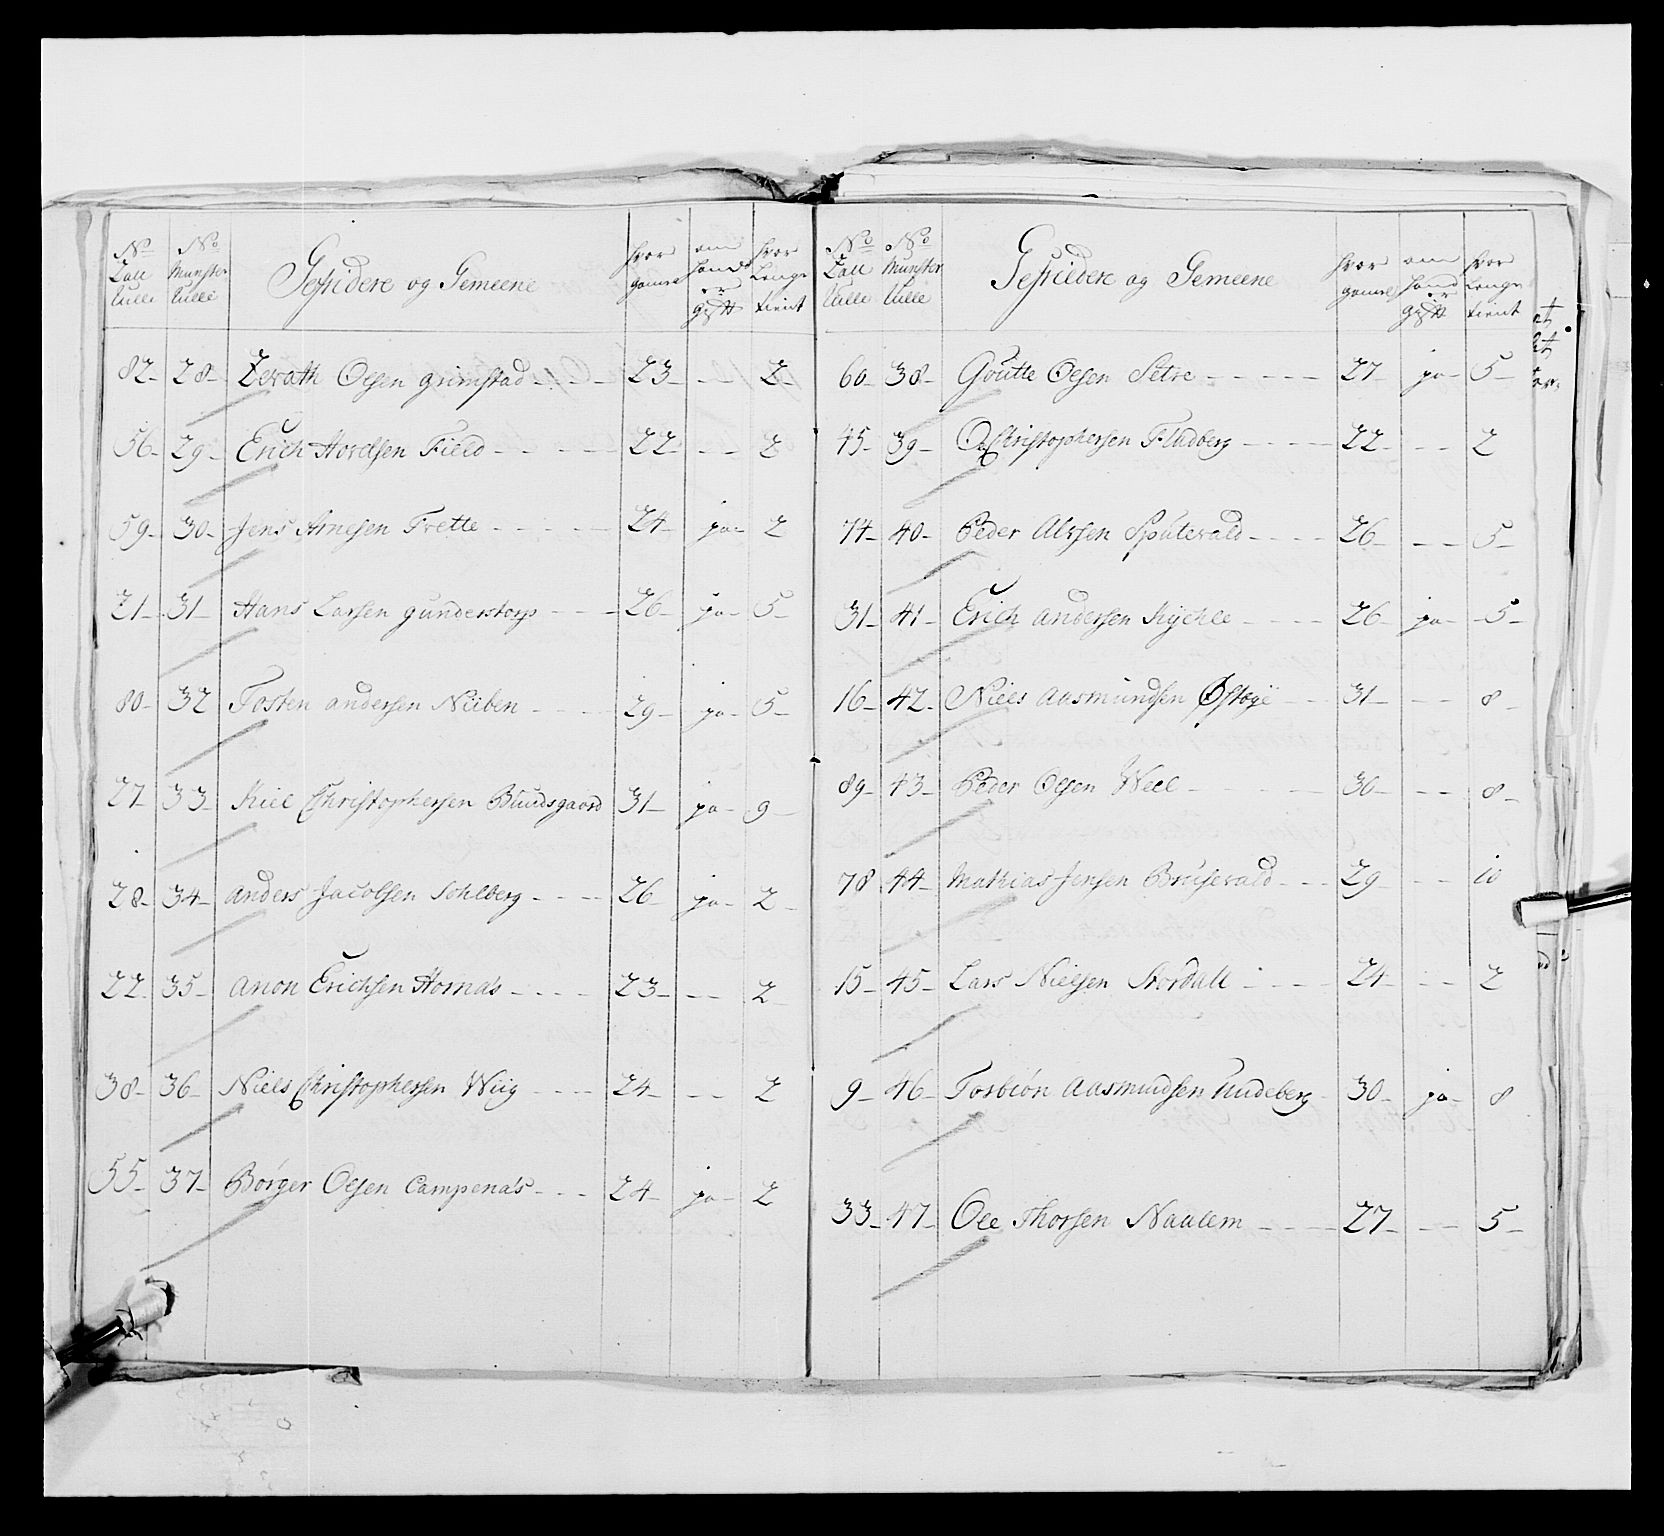 No Lau Rulle | No Munster Rulle | Gefridere og Gemeene | hvor gamel | om hand er gift | hvor Lenge tient
82 28 Zerath Oesen grimstad 23 - - 2
56 29 Erich Hovelsen Field 22 - - 2
59 30 Jens Arnesen Frette 24 ja 2
21 31 Hans Larsen gunderstorp 26 ja 5
80 32 Tosten andersen Nüben 29 ja 5
27 33 Kiel Christophersen Bundsgaard 31 ja 9
28 34 anders Jacobsen Sohlberg 26 ja 2
22 35 anon Erichsen Hornæs 23 - - 2
38 36 Niels Christophersen Wiig 24 - - 2
55 37 Børger Oesen Campenæs 24 ja 2
No Lau Rulle | No Munster Rulle | Gefridere og Gemeene | hvor gamel | om hand er gift | hvor Lenge tient
60 38 Goutte Oesen Setre 27 ja 5
45 39 Ole Christophersen Fladberg 22 - - 2
74 40 Peder Alfsen Sputevald 26 - - 5
31 41 Erich andersen Kychle 26 ja 5
16 42 Niels Aasmundsen Østøÿe 31 - - 8
89 43 Peder Olsen Weel 30 - - 8
78 44 Mathias Jensen Brusevald 29 - - 10
15 45 Lars Nielsen Stordall 24 - - 2
9 46 Torbiön Aasmundsen Rudeberg 30 ja 8
33 47 Ole Thorsen Naalem 27 - - 5